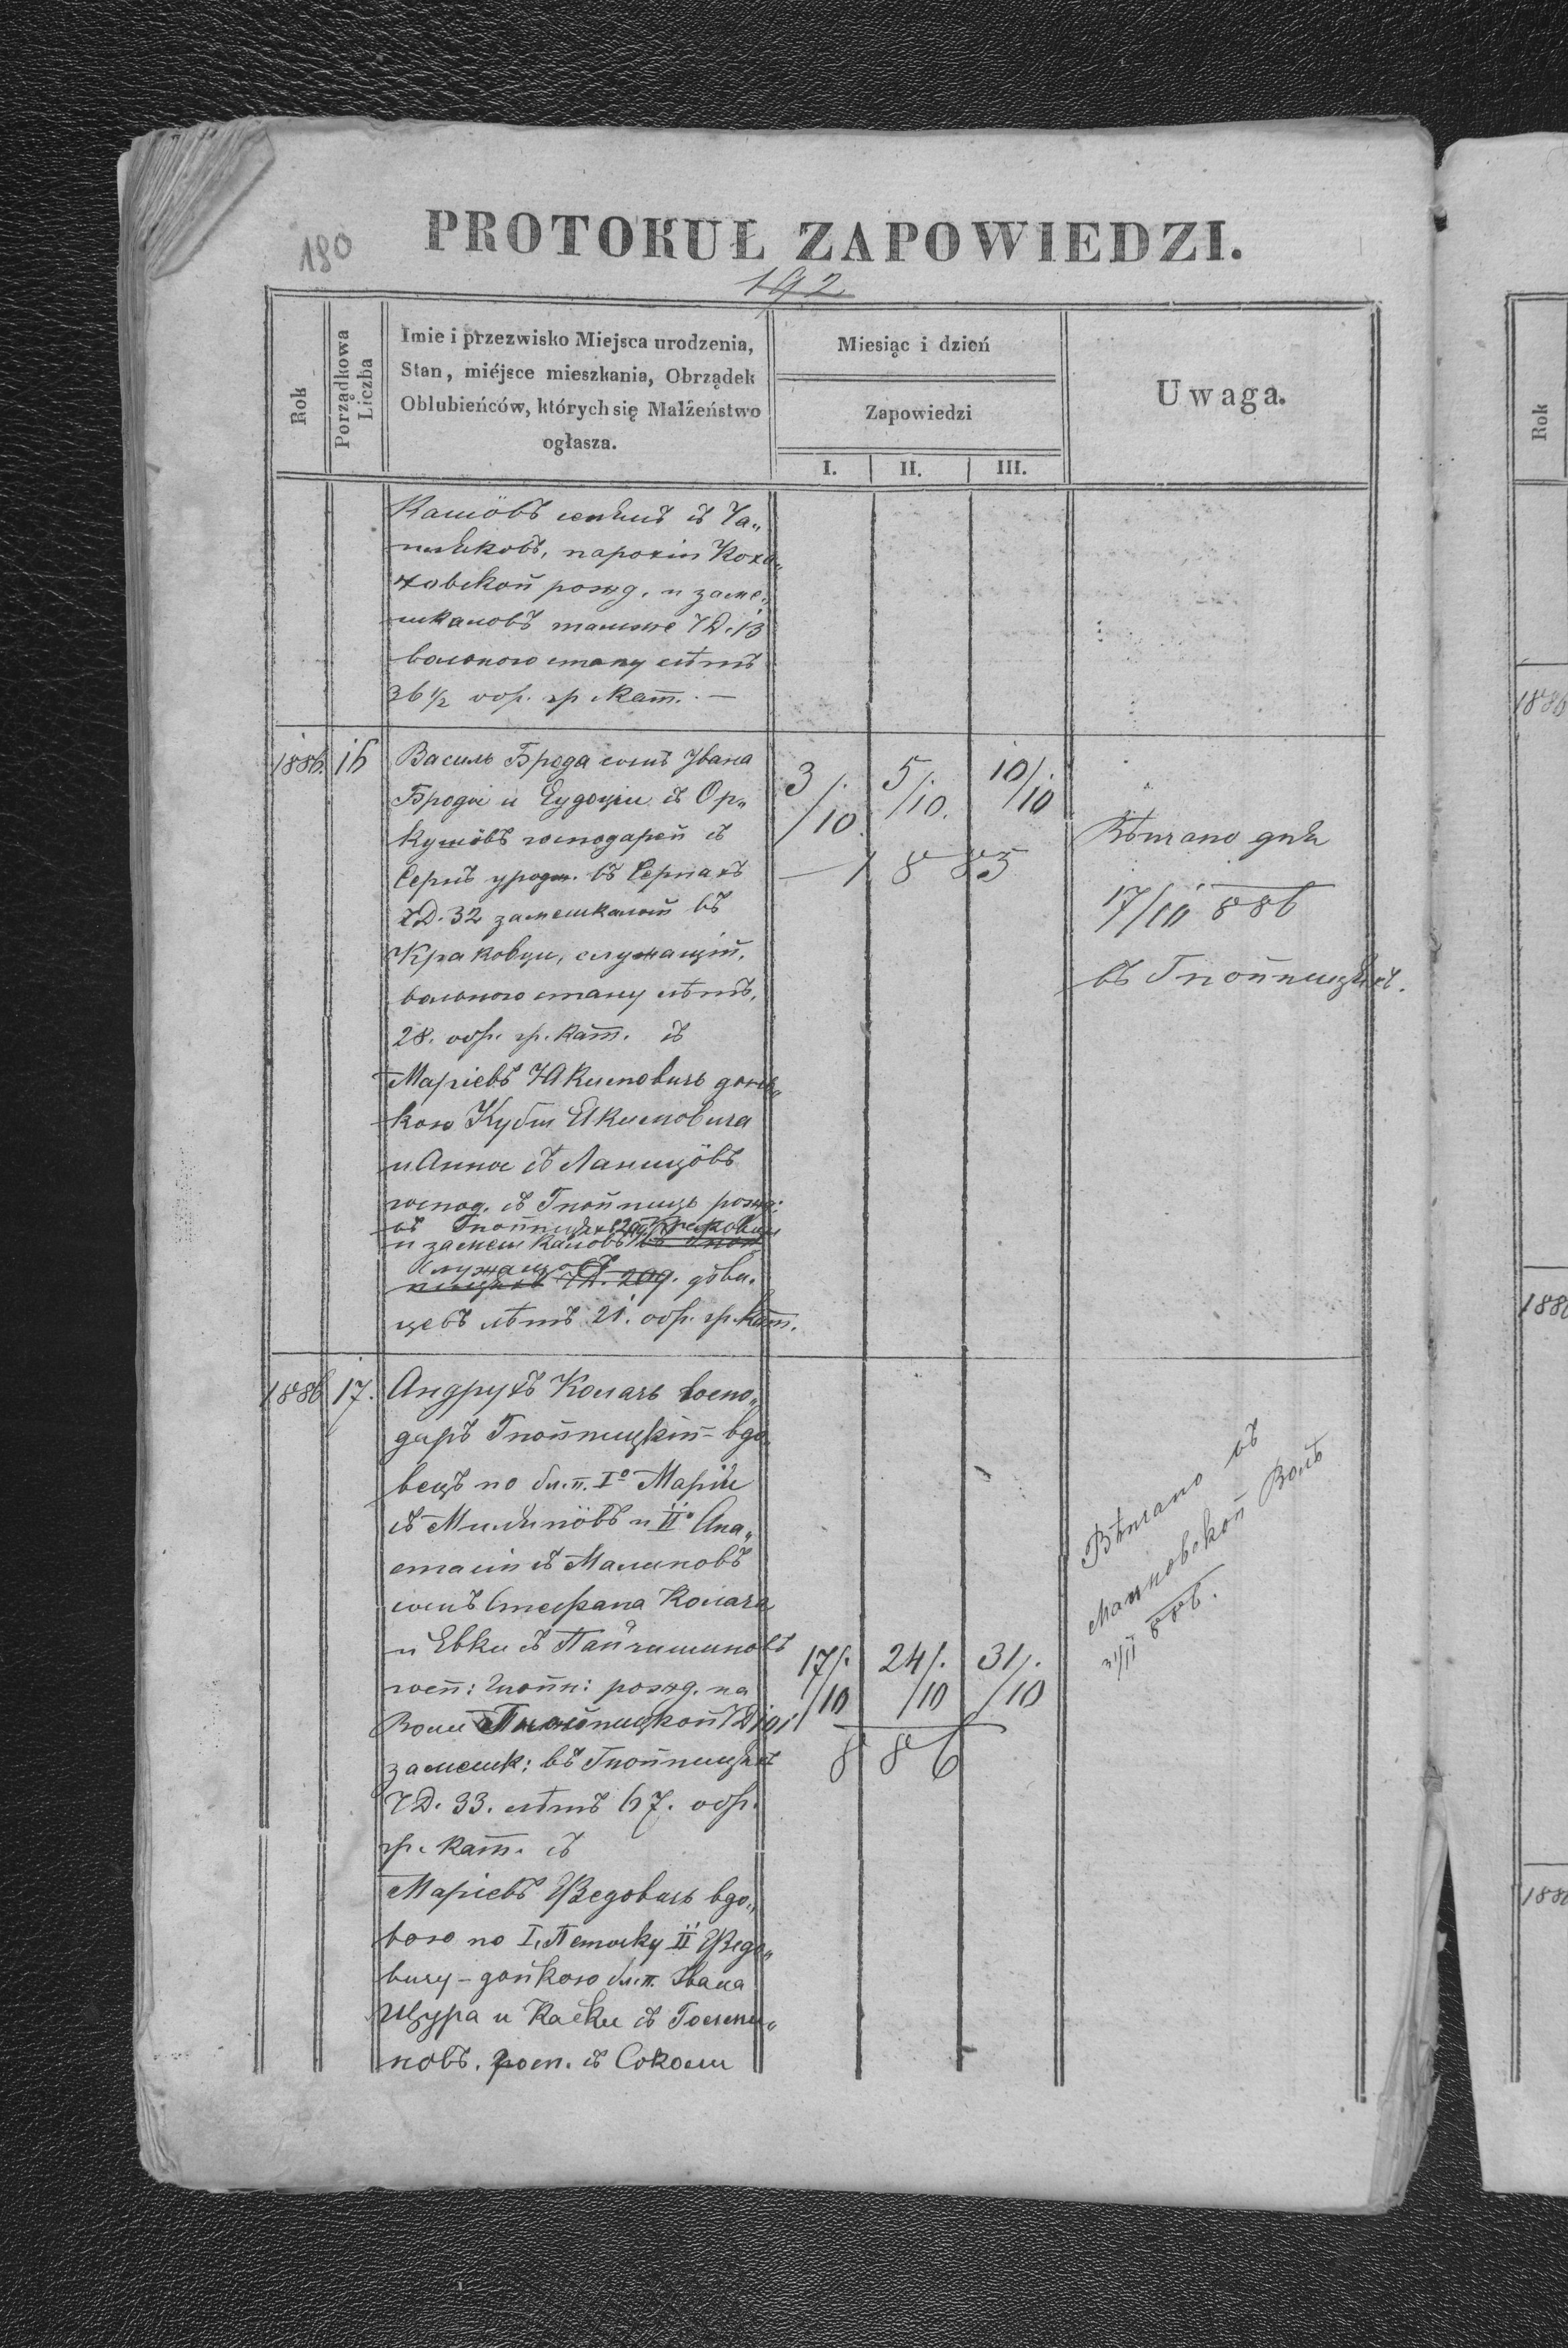 180
PROTOKUŁ ZAPOWIEDZI.
192
Rok
Porządkowa Liczba
Imie i przezwisko Miejsca urodzenia,
Stan, miéjsce mieszkania, Obrządek
Oblubieńców, których się Małżeństwo
ogłasza.
Miesiąc i dzień
Zapowiedzi
I. II. III.
Uwaga.
парохіи Коха„
рожд. и заме„
шкаловъ тамже ЧД. 13
вольного стану лѣтъ
36 1/2 обр. гр. кат. —
1886. 16 Василь Брода сынъ Ивана
Броды и Еудокіи съ Ор„
господарей съ
въ Сернахъ
ЧД. 32 замешкалый въ
Краковци, служащій,
вольного стану лѣтъ,
28. обр. гр. кат. съ
Маріевъ Якимовичъ донь„
кою Кубы Якимовича
и Анны съ
господ. съ Гнойницъ рожд:
въ Гнойницяхъ 209
и замешкаловъ
ЧД. 209. дѣви„
цевъ лѣтъ 21. обр. гр. кат.
3/10. 5/10. 10/10
1885
Вѣнчано дня
17/10 886
въ Гнойницяхъ.
1886 17. Андрухъ Комачь госпо„
даръ Гнойницкій - вдо
вецъ по бл. п. I° Маріи
и II° Ана„
стасіи съ Малиновъ
сынъ Стефана Комача
и Евки съ
госп: Гнойн: рожд. на
Воли Гнойницкой ЧД 101
замешк: въ Гнойницяхъ
ЧД. 33. лѣтъ 67. обр.
гр. кат. съ
Маріевъ Федовичь вдо„
вою по I. II Федо„
вичу - донькою бл. п. Ивана
Щура и Каськи съ
новъ. госп. съ Соколи
17/10 24/10 31/10
886
Вѣнчано въ
Малновской Воли
31/II 886.
Rok
1886
1886
1886